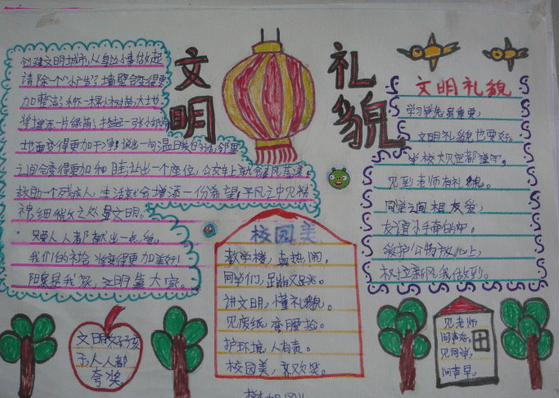 文明
礼貌
创建文明城市,从身边小事做起
请除一个小广告,墙壁会变得更
加整洁;种一棵小树苗,大地
将增添一片绿荫;捡起一张小纸屑
地面变得更加干净;说出一句温暖的话,邻里
之间会变得更加和睦;让出一个座位,公交车上就会春风荡漾;
救助一个残疾人,生活就会增添一份希望.平凡之中见
细微之处显文明,
只要人人都献出一点爱,
我们的社会将变得更加美好!
文明靠大家。
文明礼貌
学习学先最重要,
文明礼貌也要好,
见到老师有礼貌。
同学之间相友爱,
爱护公物放心上,
校园新风我做到。
校园美
教学楼,真热闹。
同学们,蹦又跳。
讲文明,懂礼貌。
见废纸,弯腰捡。
护环境,人有责。
校园美,喜欢笑。
文明好孩
子人人都
夸奖
见老师
问声好,
见同学,
问声早。